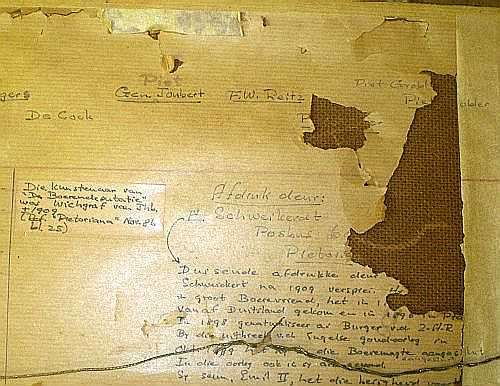 Piet
Piet Grobl
gers Gen Joubert F.W. Reitz Pie alder
De Cock P
Die kunstenaar van
"De Boerendeputatie"
was Wichgraf van Jhb.
±1909
"Pretoriana" Nov. 86
bl. 25)
Afdruk deur:
E. Schweikerdt
Posbus
Pretoria
Duisende afdrukke deur
Schweickert na 1909 versprei.
'n groot Boerevriend, het in 1
vanaf Duitsland gekom en in
In 1898 genaturaliseer as Burger v.d. Z.A.R.
By die uitbreek v.d. Engelse goudoorlog in
1899 het hy die Boeremagte aangesluit
In die oorlog ook is sy
Sy seun, Emil II, het die besigheid